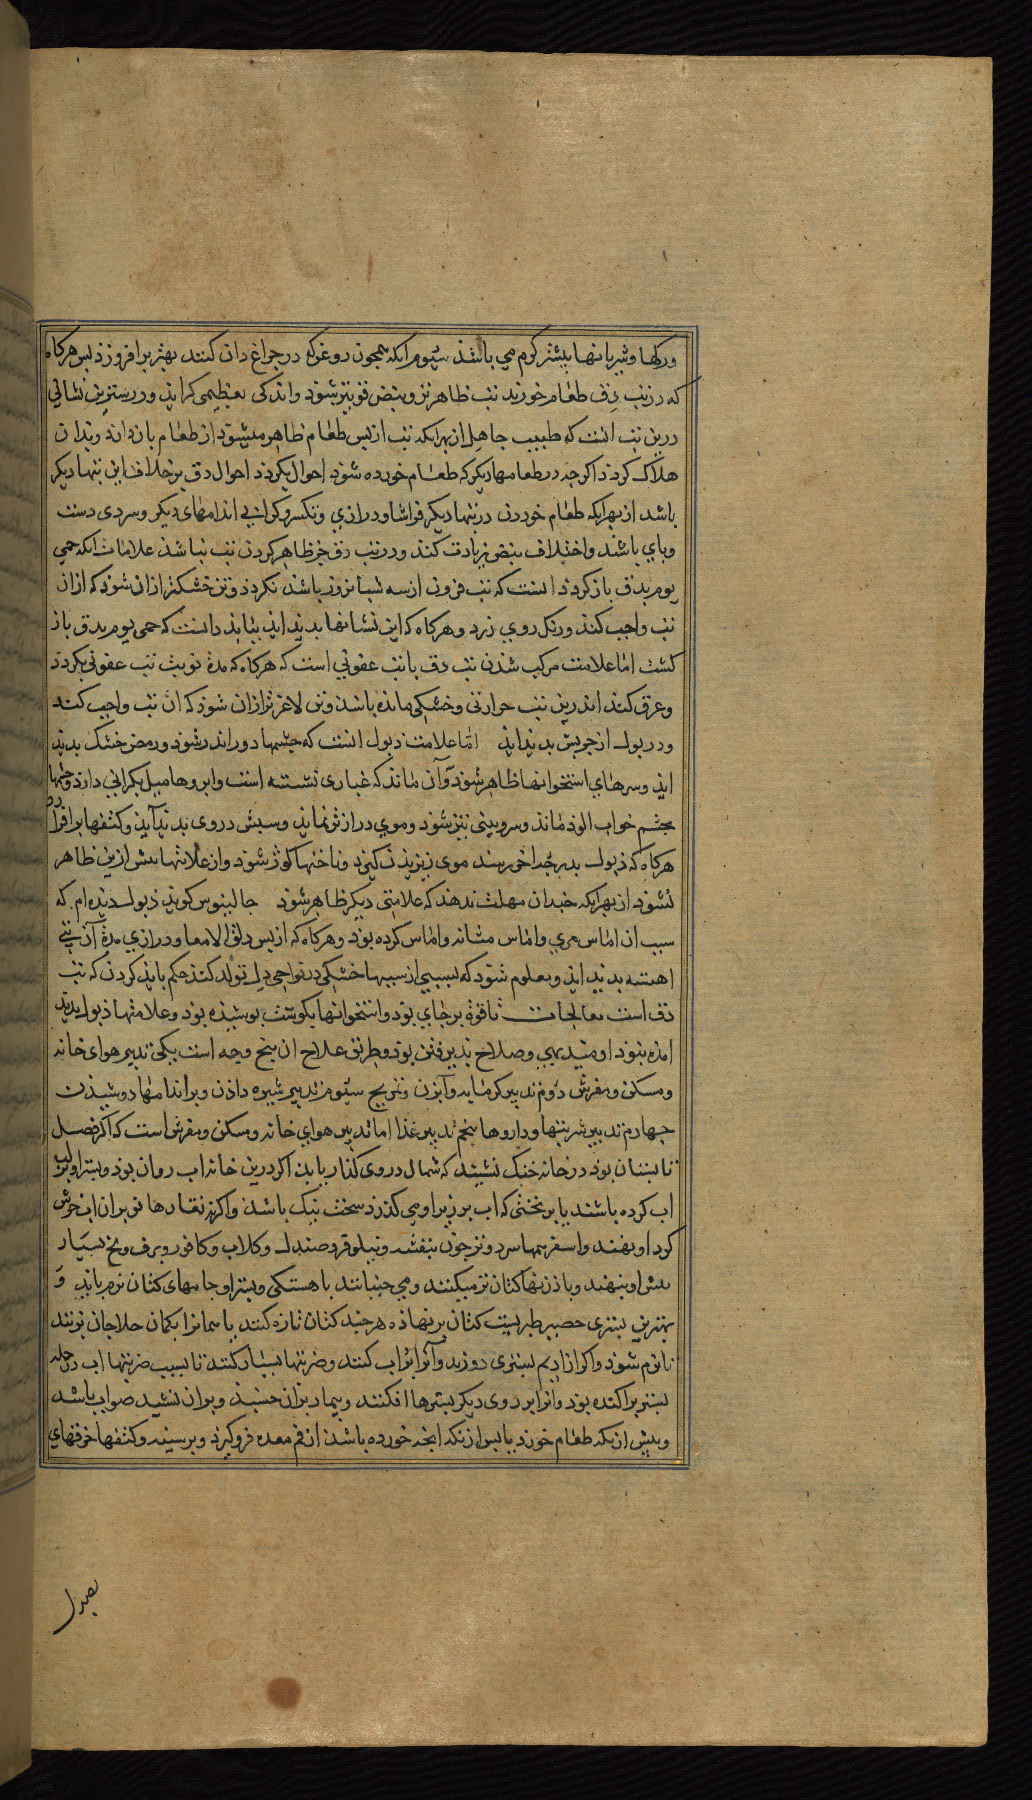 ورکها وشریانها بیشتر کرم می باشذ سیوم انکه همجون روغن که در جراغ دان کنند بهتر برافروزذ بس هرکاه
که در تب دق طعام خورند تب ظاهرتر ونبض قوی تر شوذ واندکی بعظیمی کراید ودرستترین نشانی
درین تب انست که طبیب جاهل از بهر انکه تب از بس طعام ظاهر میشوذ از طعام بازدارد وبدان
هلاک کردذ اکرجه در طعامها دیکر که طعام خورده شوذ احوال بکردذ احوال دق بر خلاف این تبها دیکر
باشد از بهر انکه طعام خوردن در تبها دیکر فراشا ودرازی وتکسر وکرانی اندامهای دیکر وسردی دست
وبای باشد واختلاف نبض زیادت کند ودر تب دق جز ظاهر کردن تب نباشذ علامات انکه حمی
یوم بدق باز کردذ انست که تب فزون از سه شبانروز باشذ نکردذ وتن خشکتر ازان شوذ که ازان
تب واجب کند ورنک روی زرد وهرکاه که این نشانها بدید اید بباید دانست که حمی یوم بدق باز
کشت امّا علامت مرکب شدن تب دق با تب عفونی است که هرکاه که مدة نوبت تب عفونی بکردذ
وعرق کند اندرین تب حرارتی وخشکی مانده باشذ وتن لاغرتر ازان شوذ که ان تب واجب کند
ودر بول از جربش بدید اید امّا علامت ذبول انست که جشمها دور اندر شوذ ورمص خشک بدید
اید وسرهای استخوانها ظاهر شوذ وآن ماند که غباری نشسته است وابروها میل بکرانی دارد وجشمها
بجشم خواب الوذ ماند وسر وبینی تیز شوذ وموی درازتر نماید وسبش در وی بدید آید وکتفها برافرازد
هرکاه که ذبول بدرجه اخر رسد موی زیریدن کیرد وناخنها کوژ شوذ واز علامتها بیش ازین ظاهر
نشوذ از بهر انکه جندان مهلت ندهد که علامتی دیکر ظاهر شوذ جالینوس کوید ذبول دیده ام که
سبب ان اماس مری واماس مثانه واماس کرده بوذ وهرکاه که از بس ذلق الامعا ودرازی مدة آن تبی
اهسته بدید اید ومعلوم شوذ که بسببی از سببها خشکی در نواحی دل تولّد کند حکم باید کردن که تب
دق است معالجات تا قوة بر جای بوذ واستخوانها بکوشت بوشیده بوذ وعلامتها ذبول بدید
امده نبوذ اومید بهی وصلاح بذیرفتن بوذ وطریق علاج ان بنج وجه است یکی تدبیر هوای خانه
ومسکن ومفرش دوم تدبیر کرمابه وآبزن وتمریخ سیوم تدبیر شیره داذن وبر اندامها دوشیذن
جهارم تدبیر شربتها وداروها بنجم تدبیر غذا اما تدبیر هوای خانه ومسکن ومفرش است که اکر فصل
تابستان بوذ در خانه خنک نشیند که شمال در وی کذار یابد اکر درین خانه اب روان بوذ وبستر او بر لب
اب کرده باشند یا بر تختی که اب بر زیر او می کذرد سخت نیک باشذ واکر نه تغارها بر اب خوش
کرد او بنهند واسفرمها سرد وتر جون بنفشه ونیلوفر وصندل وکلاب وکافور وبرف ویخ بسیار
بیش او بنهند وباذ زنها کتان تر میکنند ومی جنبانند باهستکی وبستر او جامهای کتان نرم باید و
بهترین بستری حصیر طبریست کتان بر نهاذه هر جند کتان تازه کنند یا سمانرا بکمان حلاجان بزنند
تا نرم شوذ واکر از ادیم بستری دوزند وآنرا بر اب کنند وضربتها بسیار کنند تا بسبب ضربتها اب در جمله
بستر براکنده بوذ وانرا بر روی دیکر بسترها افکنند وبیمار بران خسبد وبران نشیند صواب باشد
وبیش از انکه طعام خورد یا بس از انکه انجه خورده باشذ از فم معده فرو کیرد وبر سینه وکتفها خرقهای
بصندل